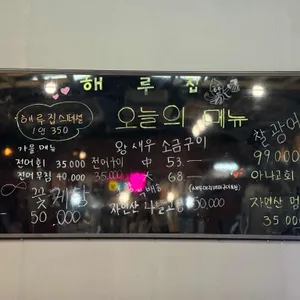 해루집
해루집스페셜
1인 350
오늘의 메뉴
가을 메뉴
전어회 35.000
전어무침 40.000
전어구이
35.000
왕새우 소금구이
中 53.—
大 68—
꽃게탕
50.000
자연산
50000
찰광어
99.000
아나고회
자연산 멍
35.000